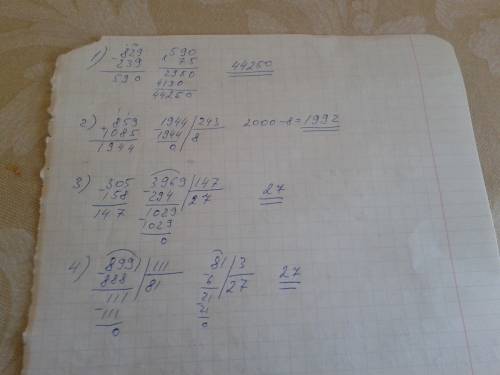 1) 829 590 44250
- 239 × 75
590 2950
4130
44250
2) 859 1944 | 243 2000-8=1992
1085 1944 | 8
1944 0
3) 305 3969 | 147 27
- 158 - 294 | 27
147 1029
- 1029
0
4) 8991 | 111 81 | 3 27
- 888 | 81 - 6 | 27
111 21
- 111 21
0 0